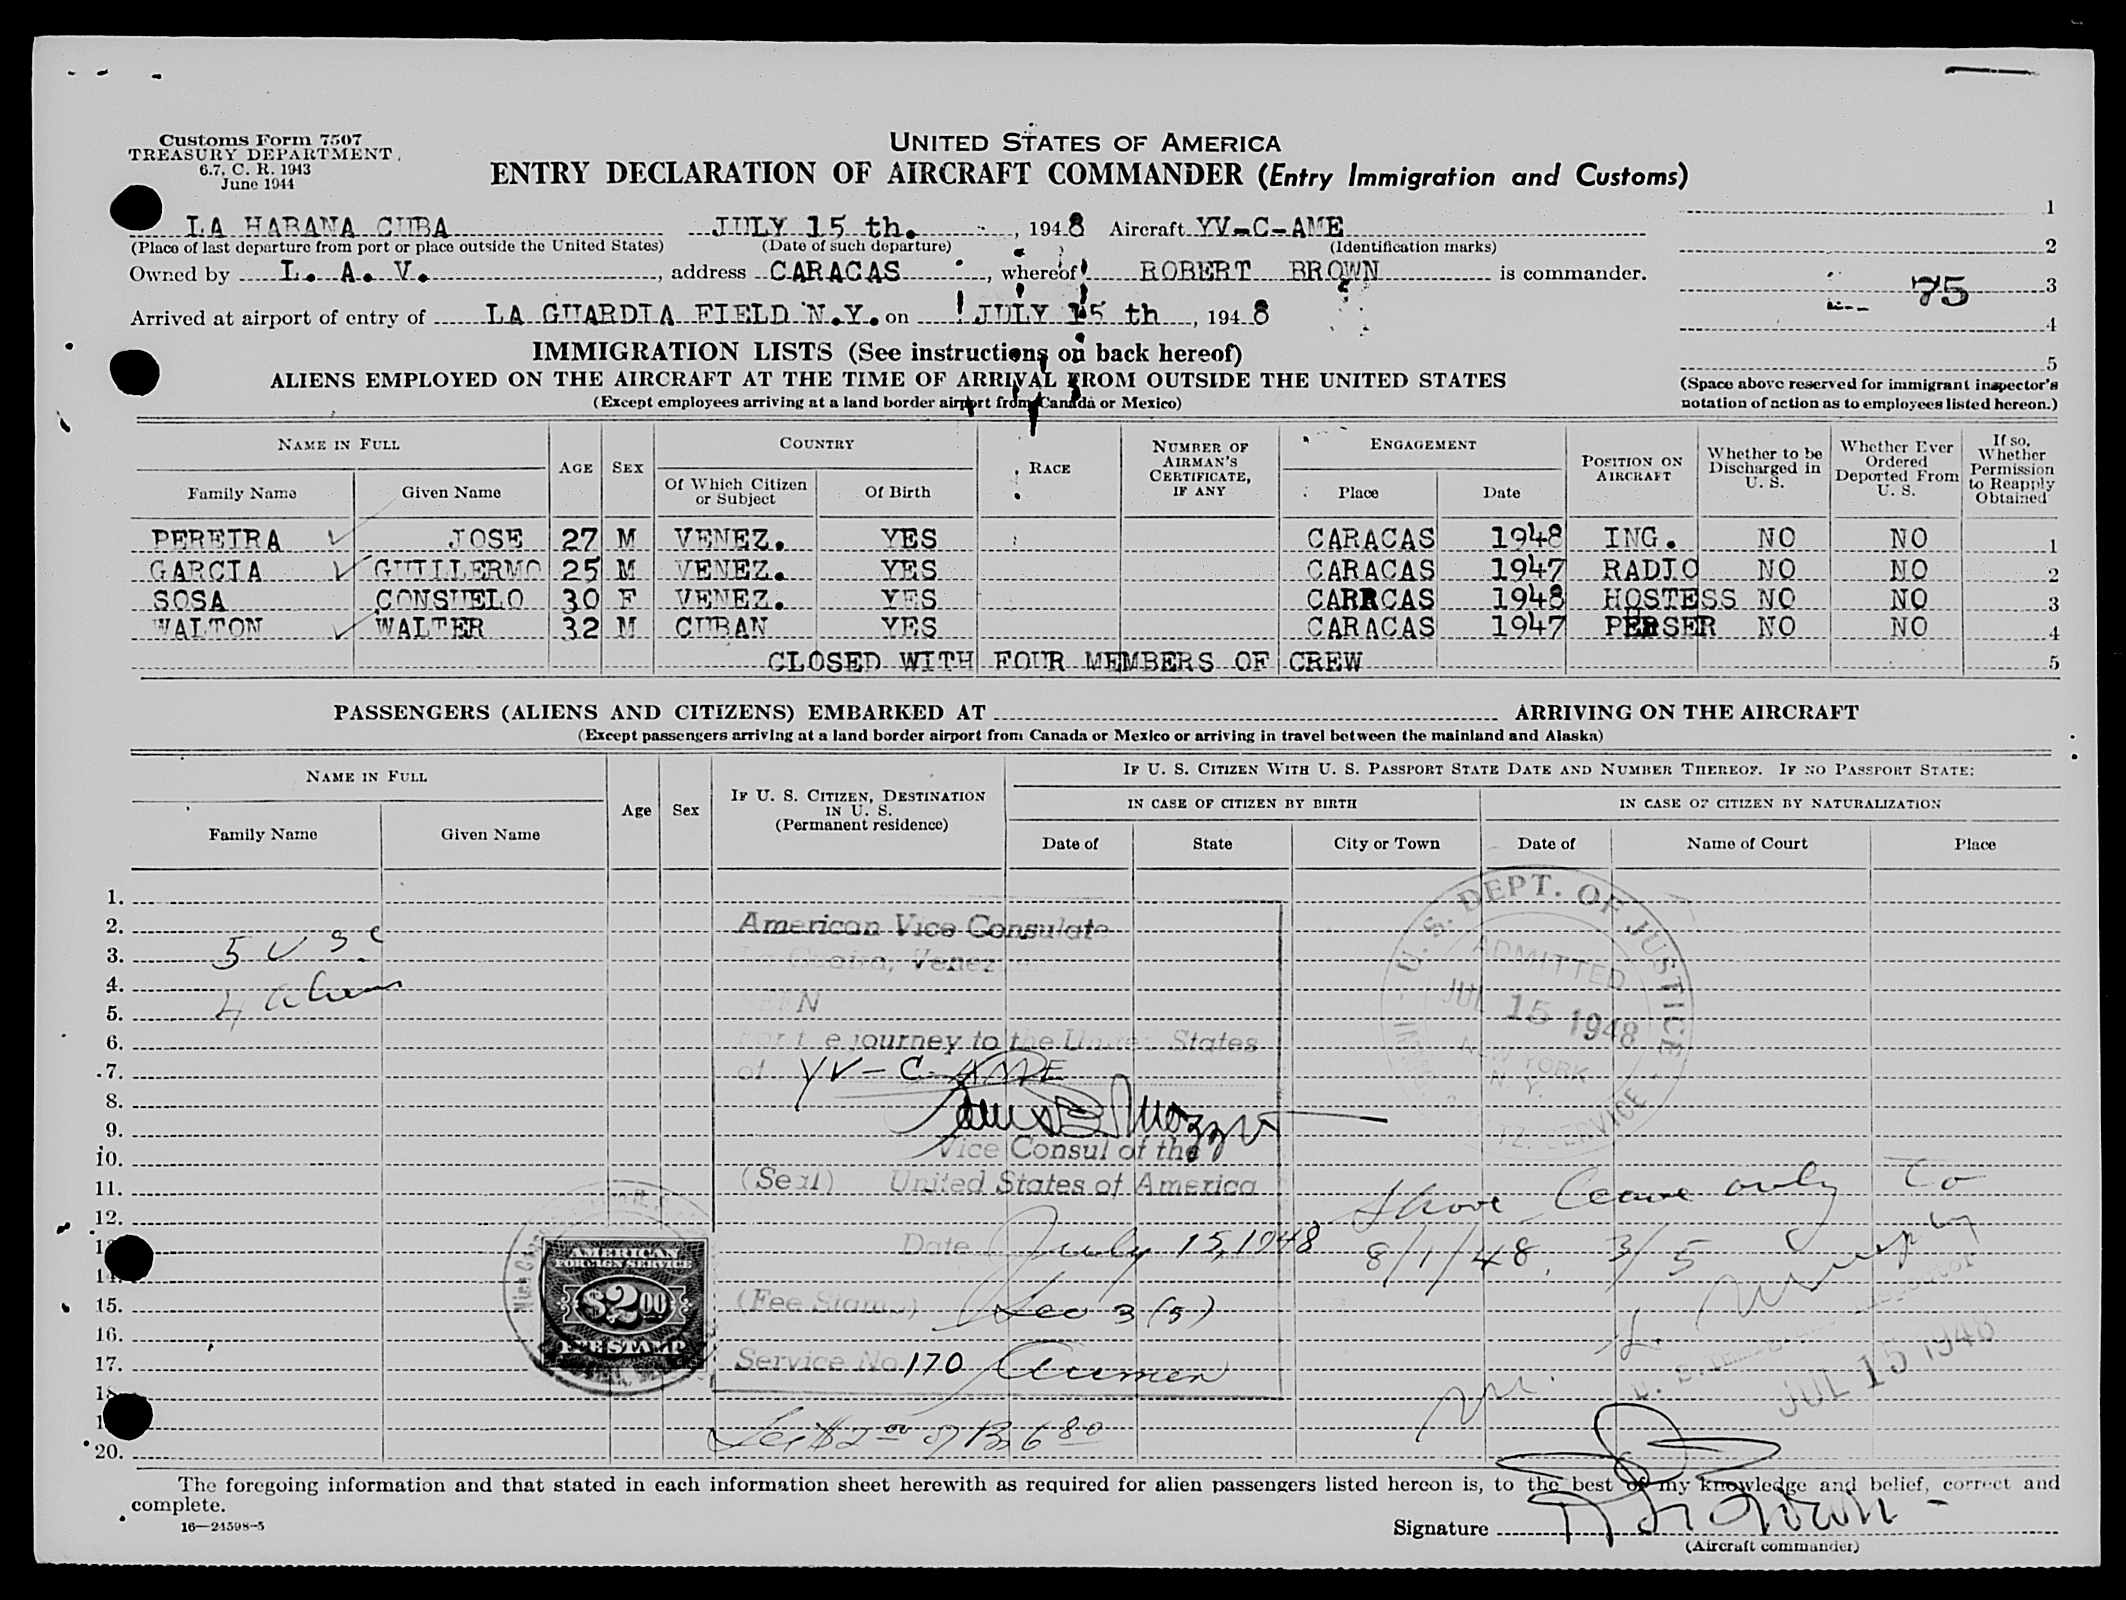 Customs Form 7507
TREASURY DEPARTMENT
6.7, C. R. 1943
June 1944
UNITED STATES OF AMERICA
ENTRY DECLARATION OF AIRCRAFT COMMANDER (Entry Immigration and Customs)
LA HABANA CUBA JULY 15 th. , 1948 Aircraft YV-C-AME 1
(Place of last departure from port or place outside the United States) (Date of such departure) (Identification marks) 2
Owned by L. A. V. , address CARACAS , whereof ROBERT BROWN is commander.
75 3
Arrived at airport of entry of LA GUARDIA FIELD N.Y. on JULY 15 th , 1948 4
IMMIGRATION LISTS (See instructions on back hereof) 5
ALIENS EMPLOYED ON THE AIRCRAFT AT THE TIME OF ARRIVAL FROM OUTSIDE THE UNITED STATES
(Except employees arriving at a land border airport from Canada or Mexico)
(Space above reserved for immigrant inspector's
notation of action as to employees listed hereon.)
NAME IN FULL AGE SEX COUNTRY RACE NUMBER OF AIRMAN'S CERTIFICATE, IF ANY ENGAGEMENT POSITION ON AIRCRAFT Whether to be Discharged in U. S. Whether Ever Ordered Deported From U. S. If so, Whether Permission to Reapply Obtained
Family Name Given Name Of Which Citizen or Subject Of Birth Place Date
PEREIRA JOSE 27 M VENEZ. YES CARACAS 1948 ING. NO NO 1
GARCIA GUILLERMO 25 M VENEZ. YES CARACAS 1947 RADIO NO NO 2
SOSA CONSUELO 30 F VENEZ. YES CARACAS 1948 HOSTESS NO NO 3
WALTON WALTER 32 M CUBAN YES CARACAS 1947 PERSER NO NO 4
CLOSED WITH FOUR MEMBERS OF CREW 5
PASSENGERS (ALIENS AND CITIZENS) EMBARKED AT ARRIVING ON THE AIRCRAFT
(Except passengers arriving at a land border airport from Canada or Mexico or arriving in travel between the mainland and Alaska)
NAME IN FULL Age Sex IF U. S. CITIZEN, DESTINATION IN U. S. (Permanent residence) IF U. S. CITIZEN WITH U. S. PASSPORT STATE DATE AND NUMBER THEREOF. IF NO PASSPORT STATE:
IN CASE OF CITIZEN BY BIRTH IN CASE OF CITIZEN BY NATURALIZATION
Family Name Given Name Date of State City or Town Date of Name of Court Place
1.
2.
3.
4.
5.
6.
7.
8.
9.
10.
11.
12.
14.
15.
16.
17.
20.
5 U S C
4 aliens
American Vice Consulate
La Guaira, Venez
For the journey to the United States
of YV-C-AME
Vice Consul of the
(Seal) United States of America
Date July 15, 1948
(Fee Stamp) Sec 3 (5)
Service No. 170
U. S. DEPT. OF JUSTICE
ADMITTED
JUL 15 1948
NEW YORK
N. Y.
SERVICE
Shore leave only to
8/1/48. 3/5
JUL 15 1948
AMERICAN
FOREIGN SERVICE
$2.00
FEE STAMP
The foregoing information and that stated in each information sheet herewith as required for alien passengers listed hereon is, to the best of my knowledge and belief, correct and
complete.
16—24598-5
Signature R Brown
(Aircraft commander)